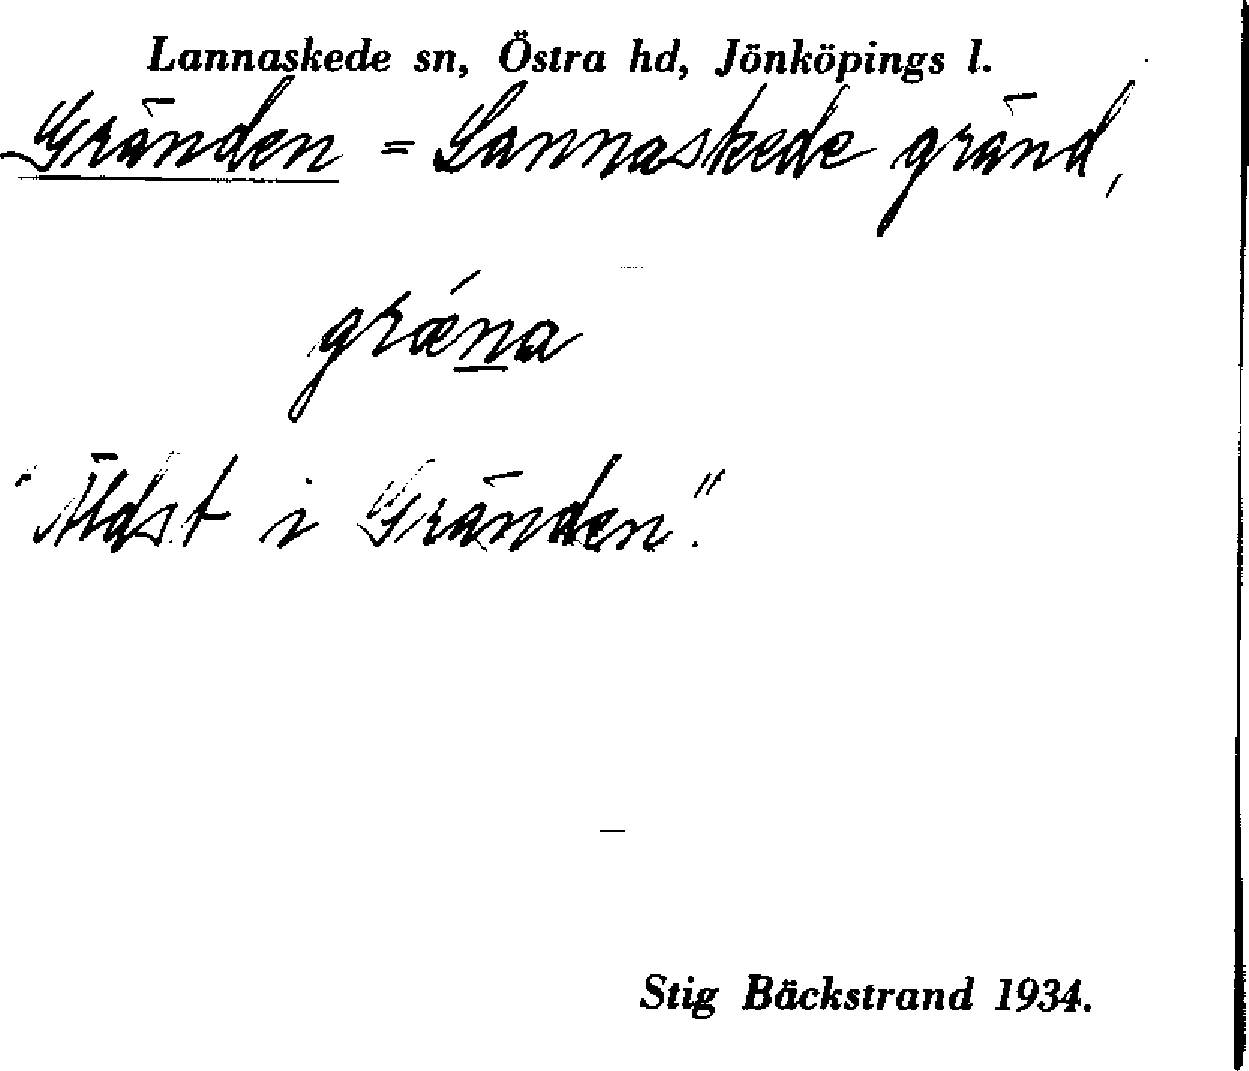 Lannaskede sn, Östra hd, Jönköpings l.
Gränden = Lannaskede gränd,
græ´na
"Äldst i Gränden".
Stig Bäckstrand 1934.